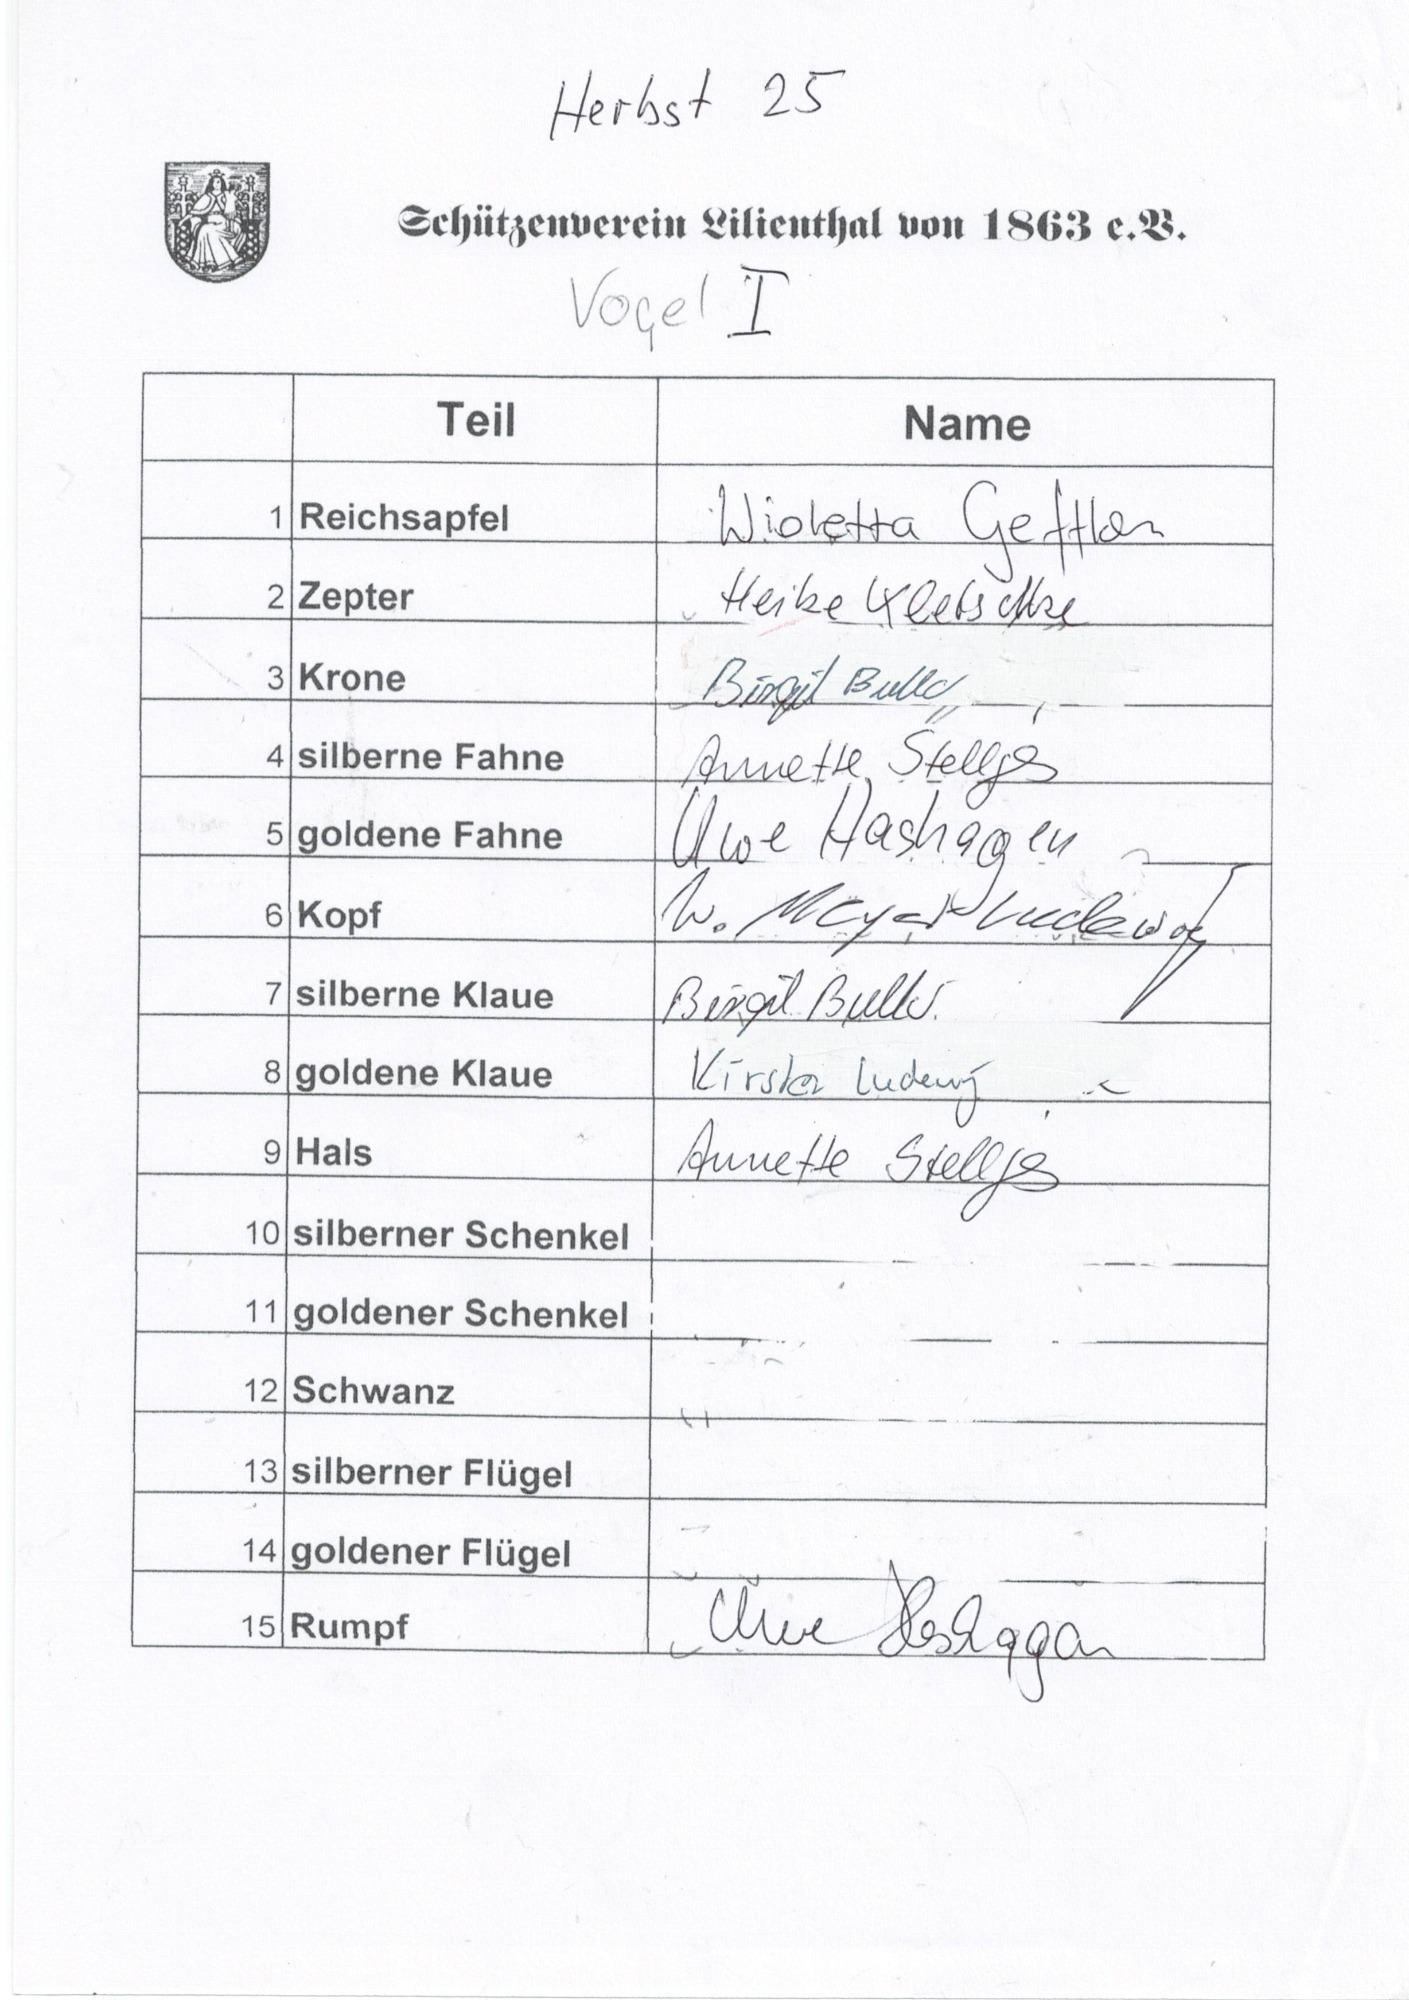 Herbst 25
Schützenverein Lilienthal von 1863 e.V.
Vogel I
Teil Name
1 Reichsapfel Wioletta
2 Zepter Heike Kletschke
3 Krone Birgit
4 silberne Fahne Annette Stelljes
5 goldene Fahne Uwe Hashagen
6 Kopf W. Meyer-Ludewig
7 silberne Klaue Birgit
8 goldene Klaue Ludewig
9 Hals Annette Stelljes
10 silberner Schenkel
11 goldener Schenkel
12 Schwanz
13 silberner Flügel
14 goldener Flügel
15 Rumpf Uwe Hashagen